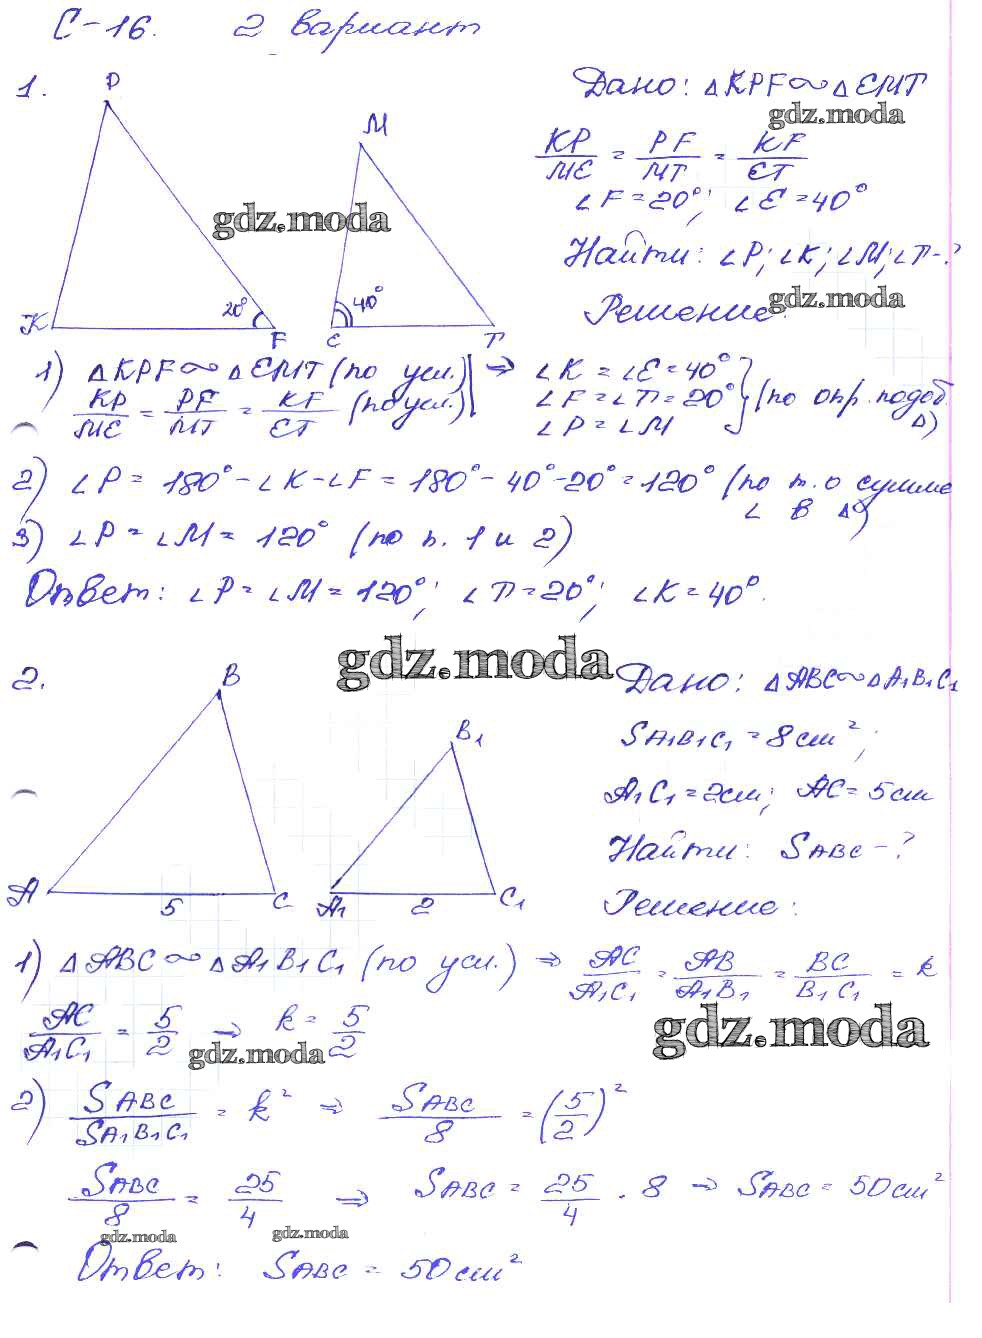 С-16. 2 вариант
1.
P
M
K
20°
F
40°
E
T
Дано: ΔKPF∾ΔEMT
gdz.moda
KP/ME = PF/MT = KF/ET
∠F=20°; ∠E=40°
gdz.moda
Найти: ∠P; ∠K; ∠M; ∠T-?
gdz.moda
Решение:
1) ΔKPF∾ΔEMT (по усл.) ⇒ ∠K=∠E=40°
KP/ME = PF/MT = KF/ET (по усл.) ∠F=∠T=20° (по опр. подоб. Δ)
∠P=∠M
2) ∠P=180°-∠K-∠F=180°-40°-20°=120° (по т. о сумме
∠ в Δ)
3) ∠P=∠M=120° (по п. 1 и 2)
Ответ: ∠P=∠M=120°; ∠T=20°; ∠K=40°.
gdz.moda
2.
B
B₁
A
5
C
A₁
2
C₁
Дано: ΔABC∾ΔA₁B₁C₁
SA₁B₁C₁=8см²;
A₁C₁=2см; AC=5см
Найти: SABC-?
Решение:
1) ΔABC∾ΔA₁B₁C₁ (по усл.) ⇒ AC/A₁C₁ = AB/A₁B₁ = BC/B₁C₁ = k
AC/A₁C₁ = 5/2 ⇒ k = 5/2
gdz.moda
gdz.moda
2) SABC/SA₁B₁C₁ = k² ⇒ SABC/8 = (5/2)²
SABC/8 = 25/4 ⇒ SABC = 25/4 · 8 ⇒ SABC = 50см²
gdz.moda
gdz.moda
Ответ: SABC = 50см²